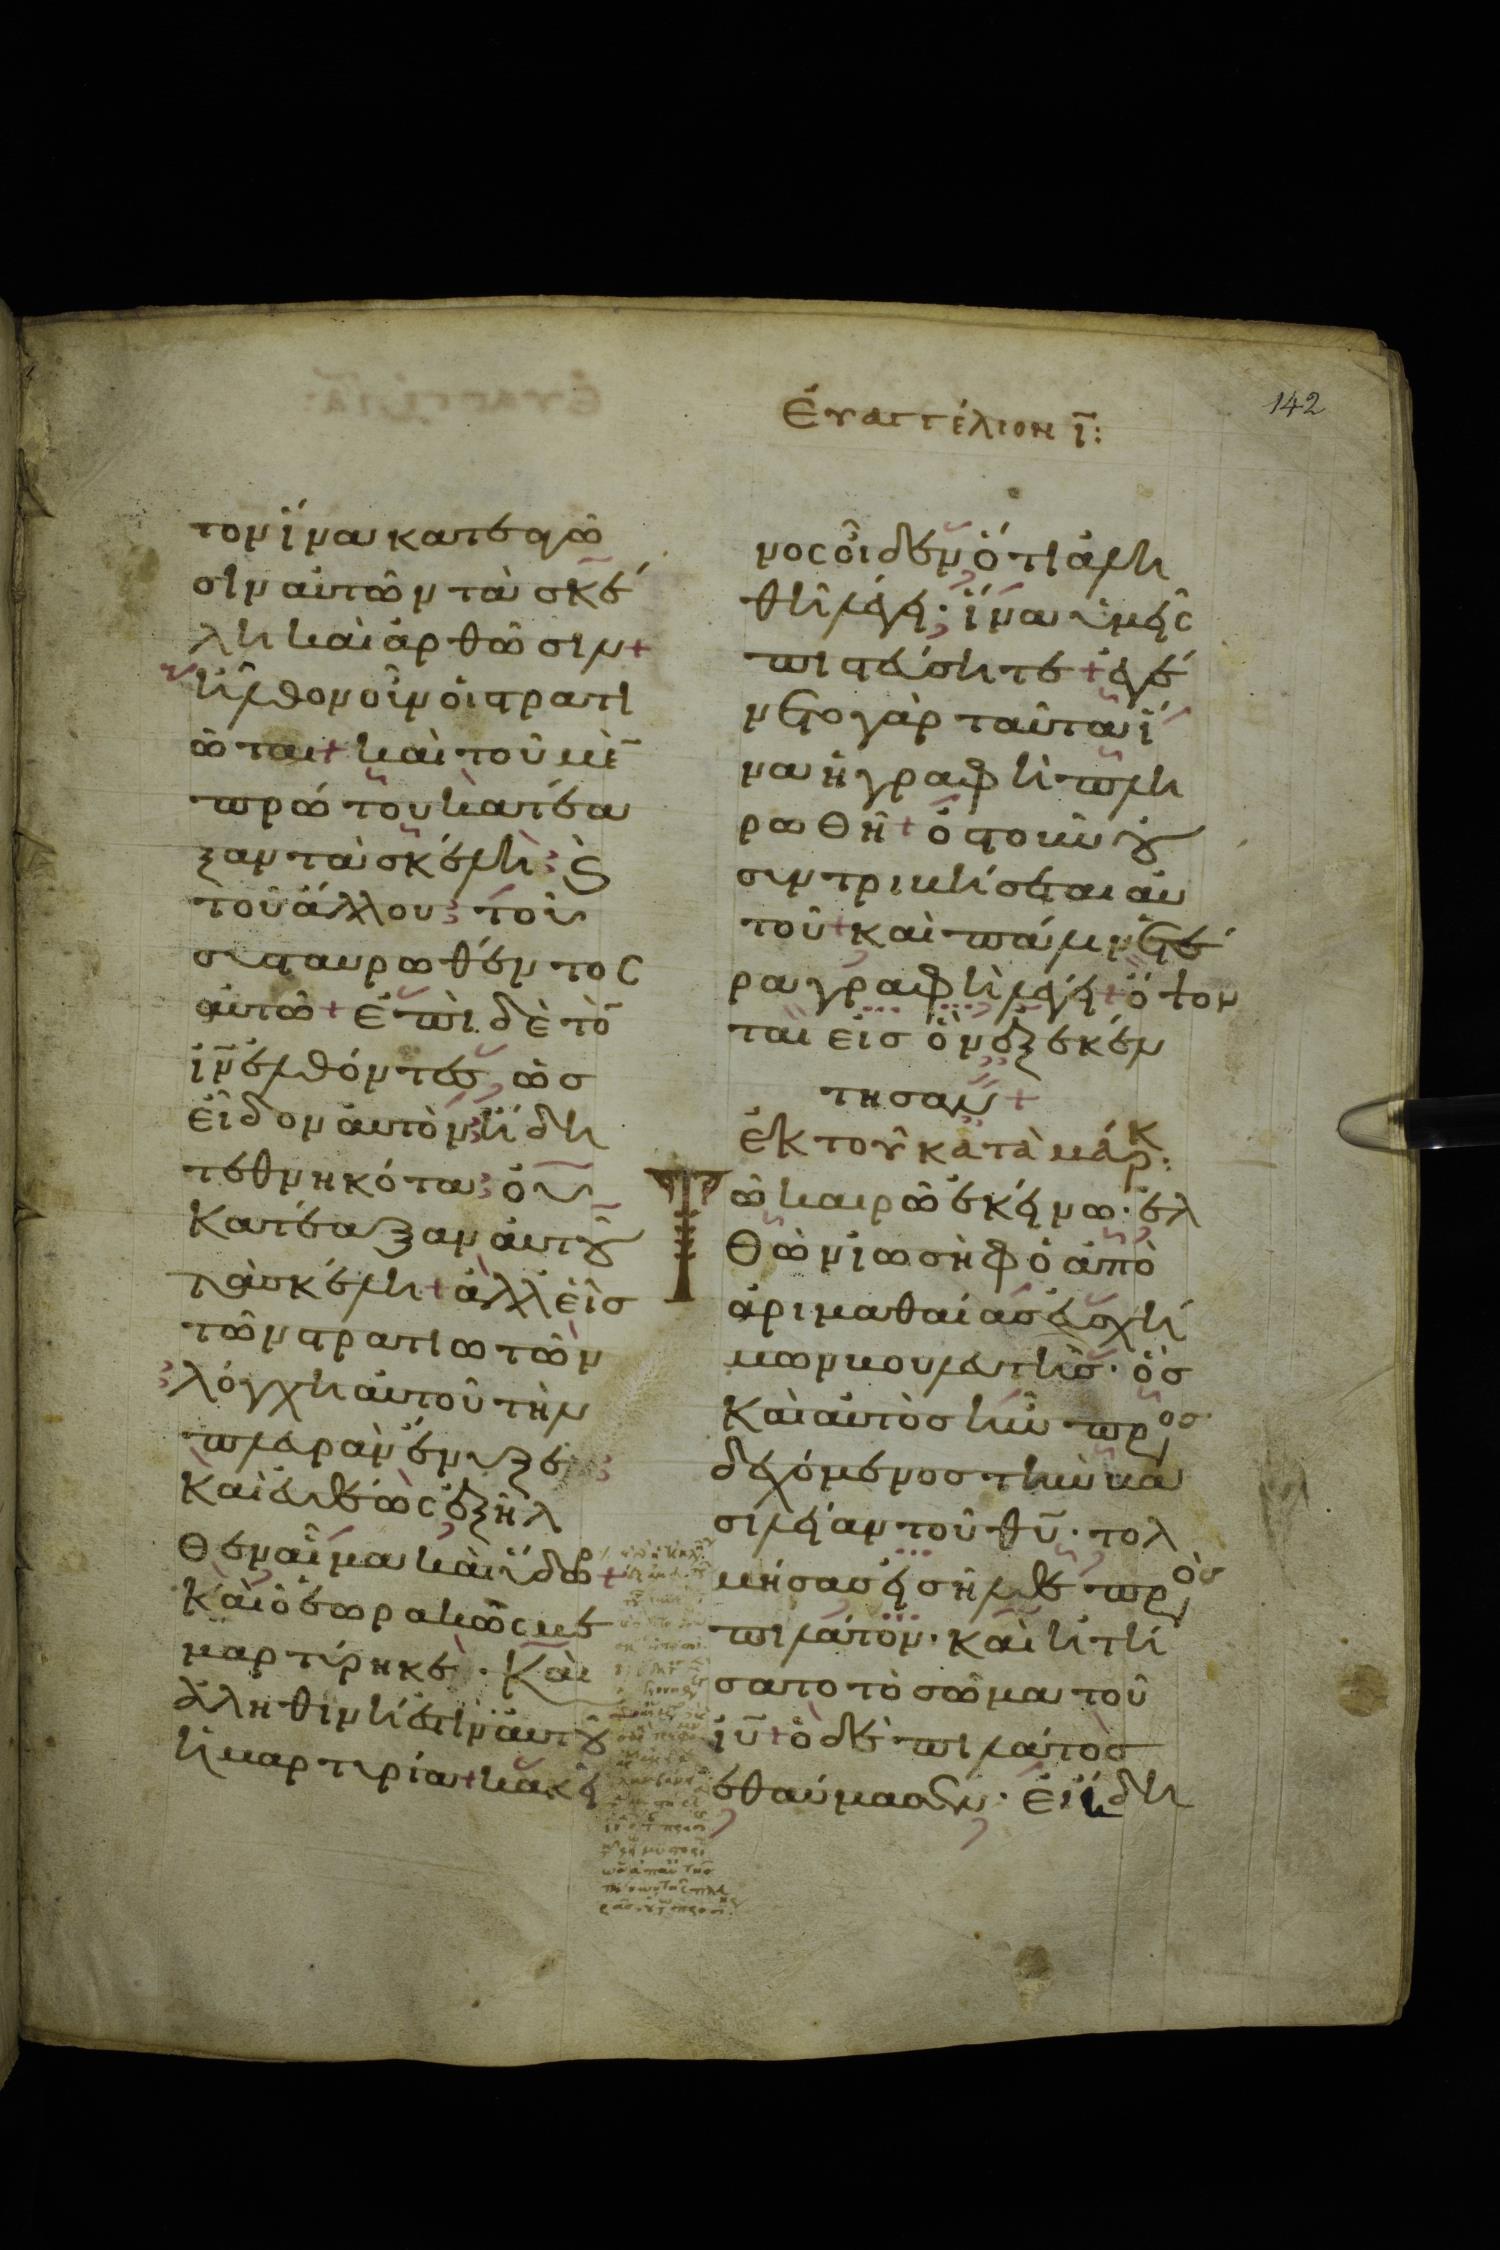 Εὐαγγέλιον ι̅:
142
τον ἵνα κατεαγῶ
σιν αὐτῶν τὰ σκέ
λη καὶ ἀρθῶσιν+
ἦλθον οἶν οἱ στρατι
ῶται+ καὶ τοῦ μὲ̅
πρώτου κατέα
ξαν τὰ σκέλη· ϗ
τοῦ ἄλλου· τοῦ
συσταυρωθέντος
αὐτῶ+ ἐπὶ δὲ τὸ̅
ι̅ν̅ ἐλθόντες, ὡσ
εἶδον αὐτὸν ἤδη
τεθνηκότα· οὐ
κατέαξαν αὐτοῦ
τὰ σκέλη+ ἀλλ εἷσ
τῶν στρατιωτῶν
λόγχη αὐτοῦ τὴν
πλευρὰν ἔνυξε·
καὶ εὐθέως ἐξῆλ
θεν αἷμα καὶ ὕδωρ+
καὶ ὁ ἑωρακὼς με
μαρτύρηκε· καὶ
ἀληθινή ἐστὶν αὐτοῦ
ἡ μαρτυρία+ κακεῖ
νος οἶδεν ὅτι ἀλη
θῆ λέγει· ἵνα ὑμεῖς
πιστεύσητε+ ἐγέ
νετο γὰρ ταῦτα ἵ
να ἡ γραφὴ πλη
ρωθῆ+ ὀστοῦν οὐ
συντριβήσεται αὐ
τοῦ+ καὶ πάλιν ἑτέ
ρα γραφὴ λέγει+ ὄψον
ται εἰσ ὃν ἐξεκέν
τησαν+
ἐκ τοῦ κατὰ μάρκ:
Τῶ καιρῶ ἐκείνω· ἐλ
θὼν ἰωσὴφ ὁ ἀπὸ
ἀριμαθαίασ εὐσχή
μων βουλευτὴσ· ὃσ
καὶ αὐτὸσ ἦν προσ
δεχόμενοσ τὴν βα
σιλείαν τοῦ θ̅υ̅· τολ
μήσασ εἰσῆλθε πρὸσ
πιλάτον· καὶ ἠτή
σατο τὸ σῶμα τοῦ
ι̅υ̅+ ὁ δὲ πιλάτοσ
ἐθαύμασεν· εἰ ἤδη